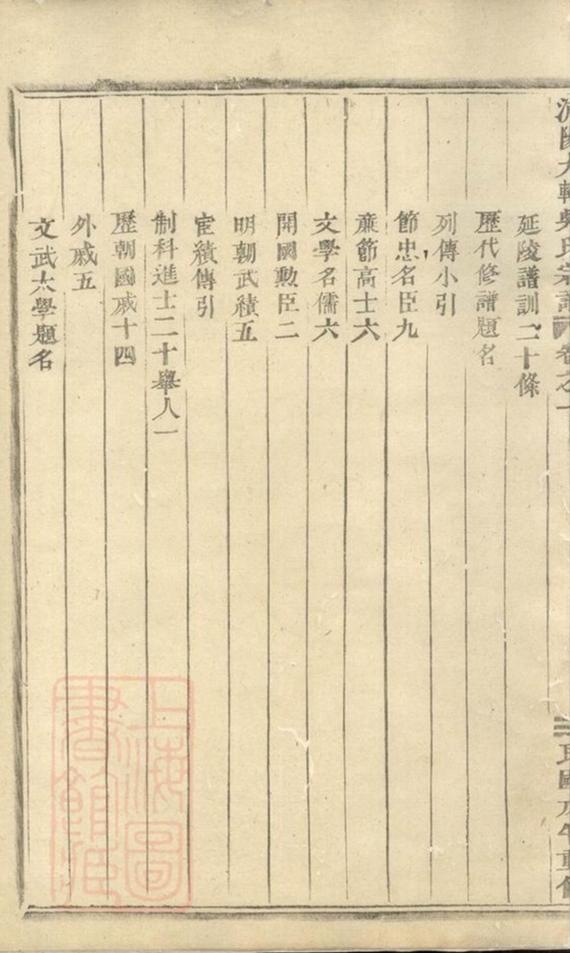 氏宗譜
卷之一
延陵譜訓二十條
歷代修譜題名
列傳小引
節忠名臣九
亷節高士六
文學名儒六
開國勲臣二
明朝武績五
宦績傳引
制科進士二十舉人一
歷朝國戚十四
外戚五
文武太學題名
民國戊午重修
上海圖書館藏